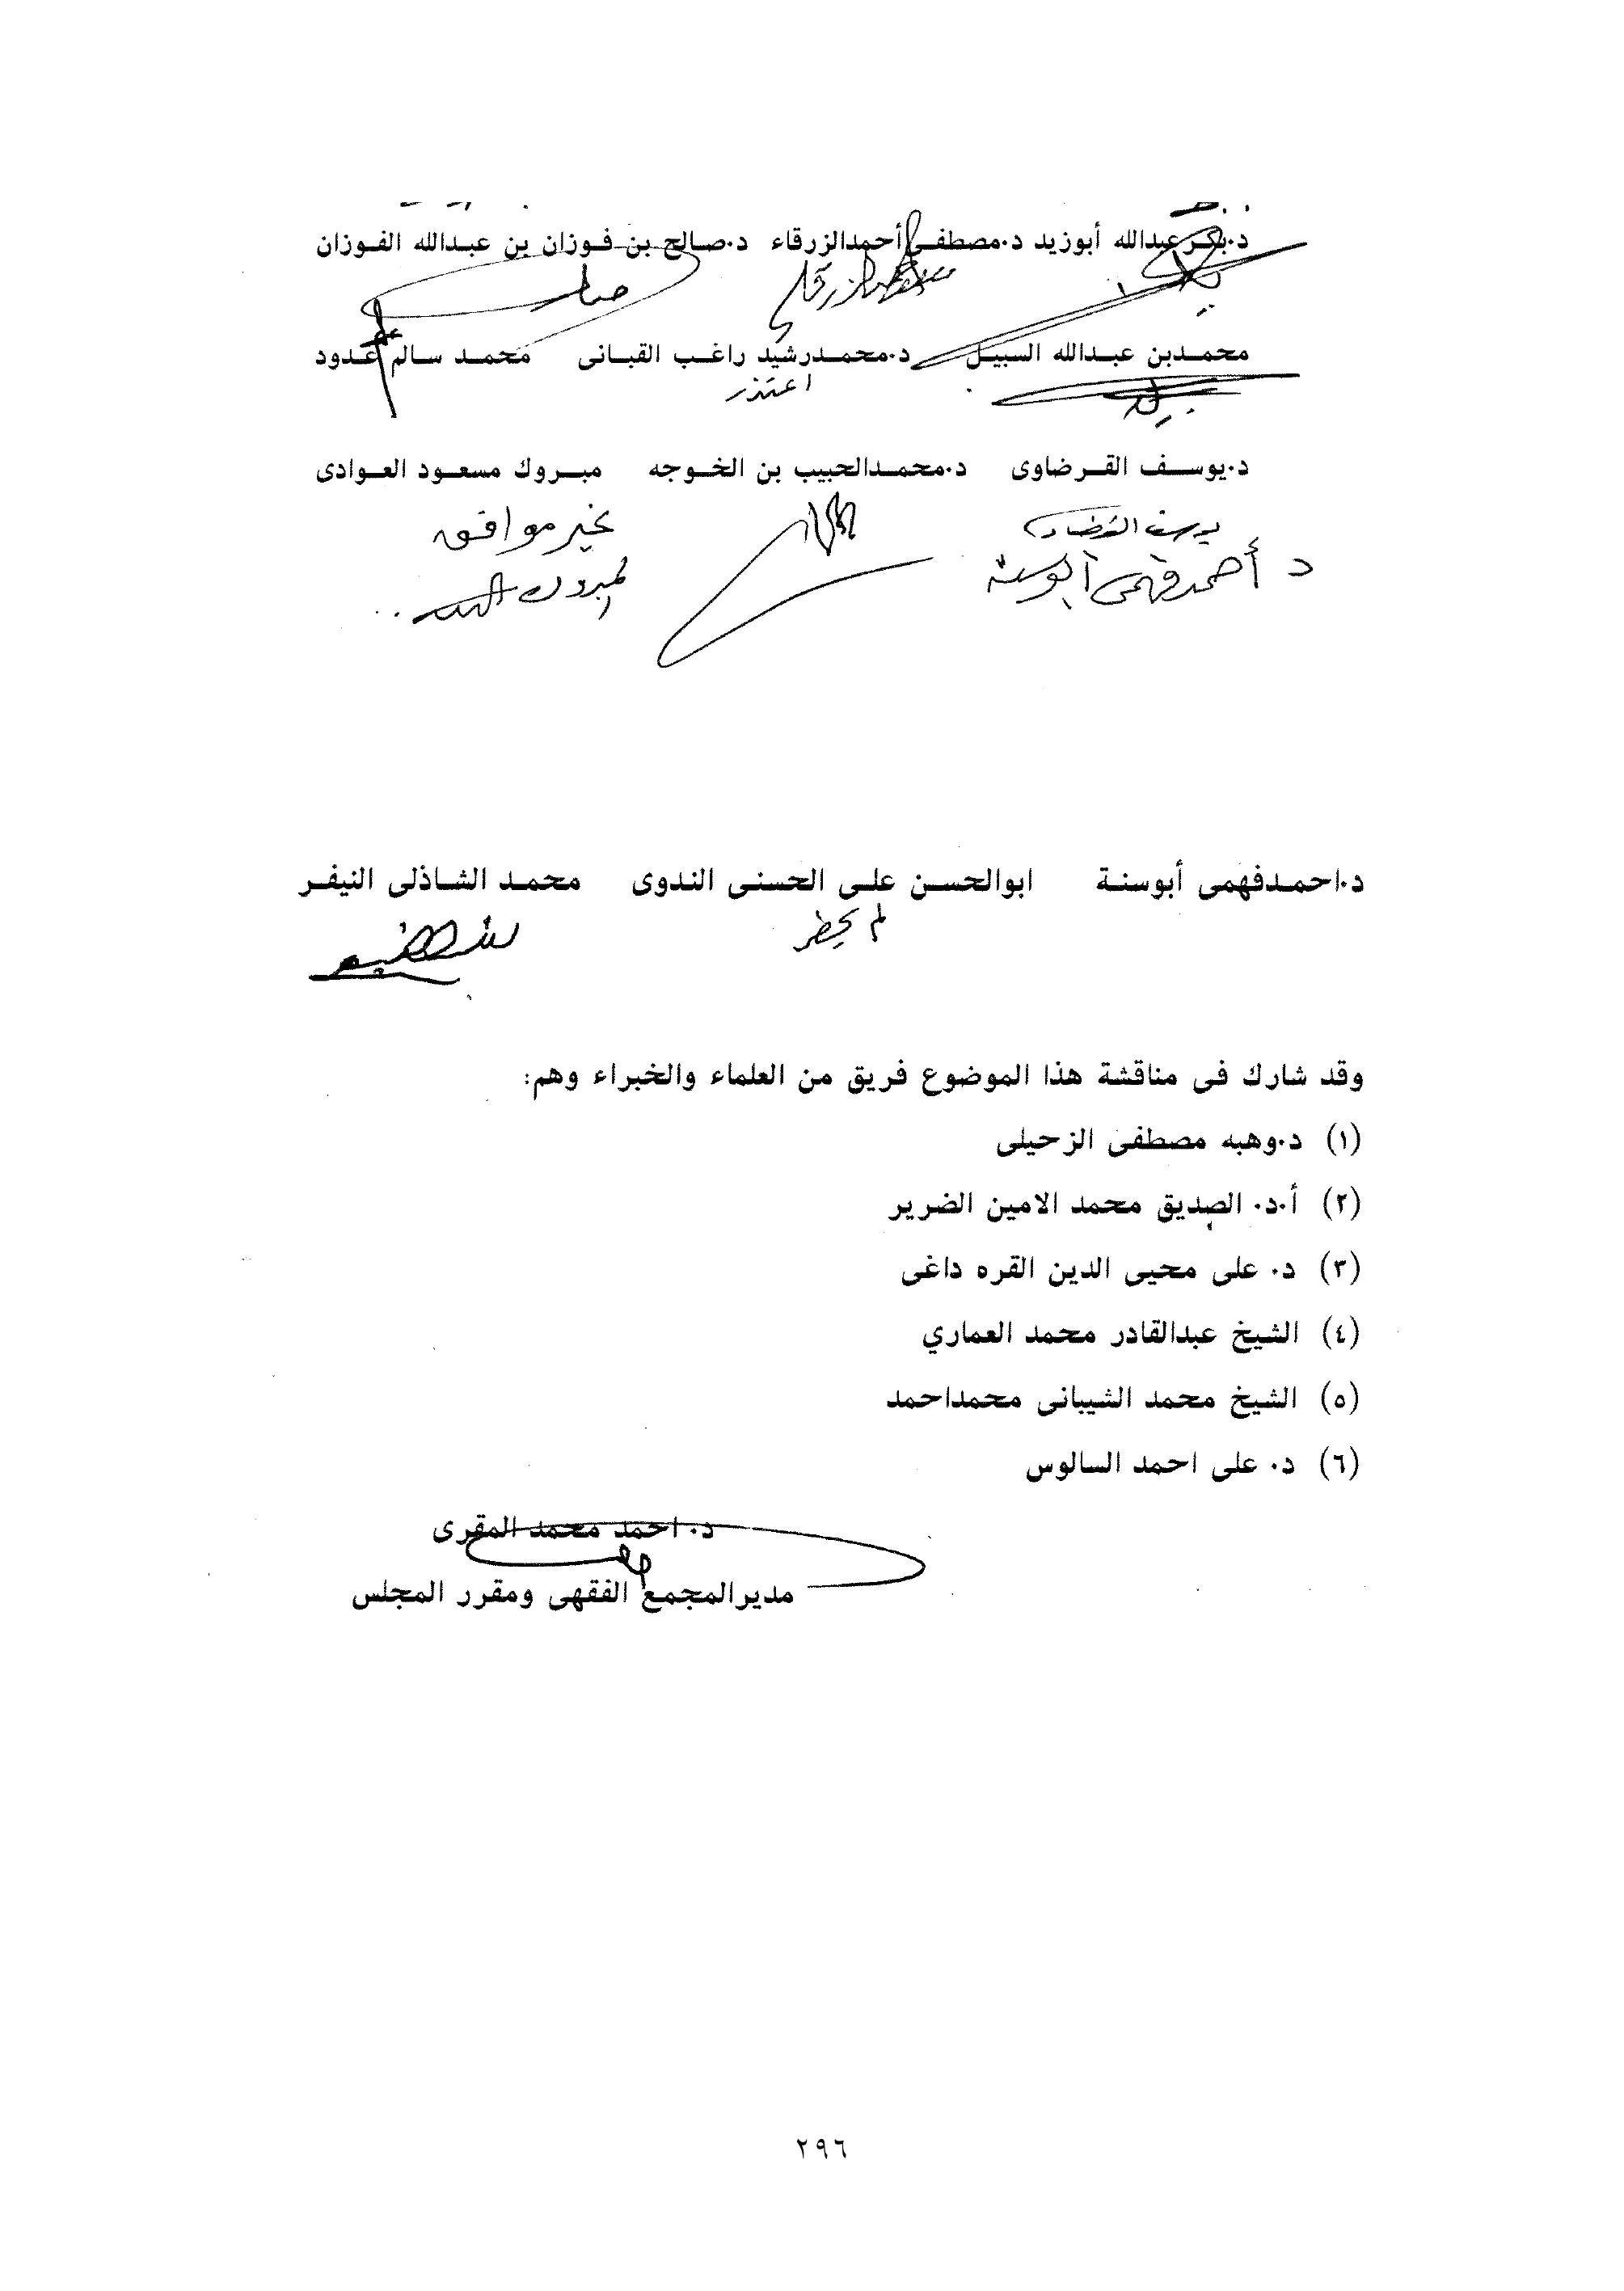 د.بكر عبدالله أبوزيد د.مصطفى أحمدالزرقاء د.صالح بن فوزان بن عبدالله الفوزان
مصطفى الزرقاء صالح
محمدبن عبدالله السبيل د.محمدرشيد راغب القبانى محمد سالم عدود
اعتذر
د.يوسف القرضاوى د.محمدالحبيب بن الخوجه مبروك مسعود العوادى
يوسف القرضاوى غير موافق
د أحمد فهمى أبوسنة المبروك
د.احمدفهمى أبوسنة ابوالحسن على الحسنى الندوى محمد الشاذلى النيفر
لم يحضر
وقد شارك فى مناقشة هذا الموضوع فريق من العلماء والخبراء وهم:
(١) د.وهبه مصطفى الزحيلى
(٢) أ.د. الصديق محمد الامين الضرير
(٣) د. على محيى الدين القره داغى
(٤) الشيخ عبدالقادر محمد العماري
(٥) الشيخ محمد الشيبانى محمداحمد
(٦) د. على احمد السالوس
د. احمد محمد المقرى
مديرالمجمع الفقهى ومقرر المجلس
٢٩٦